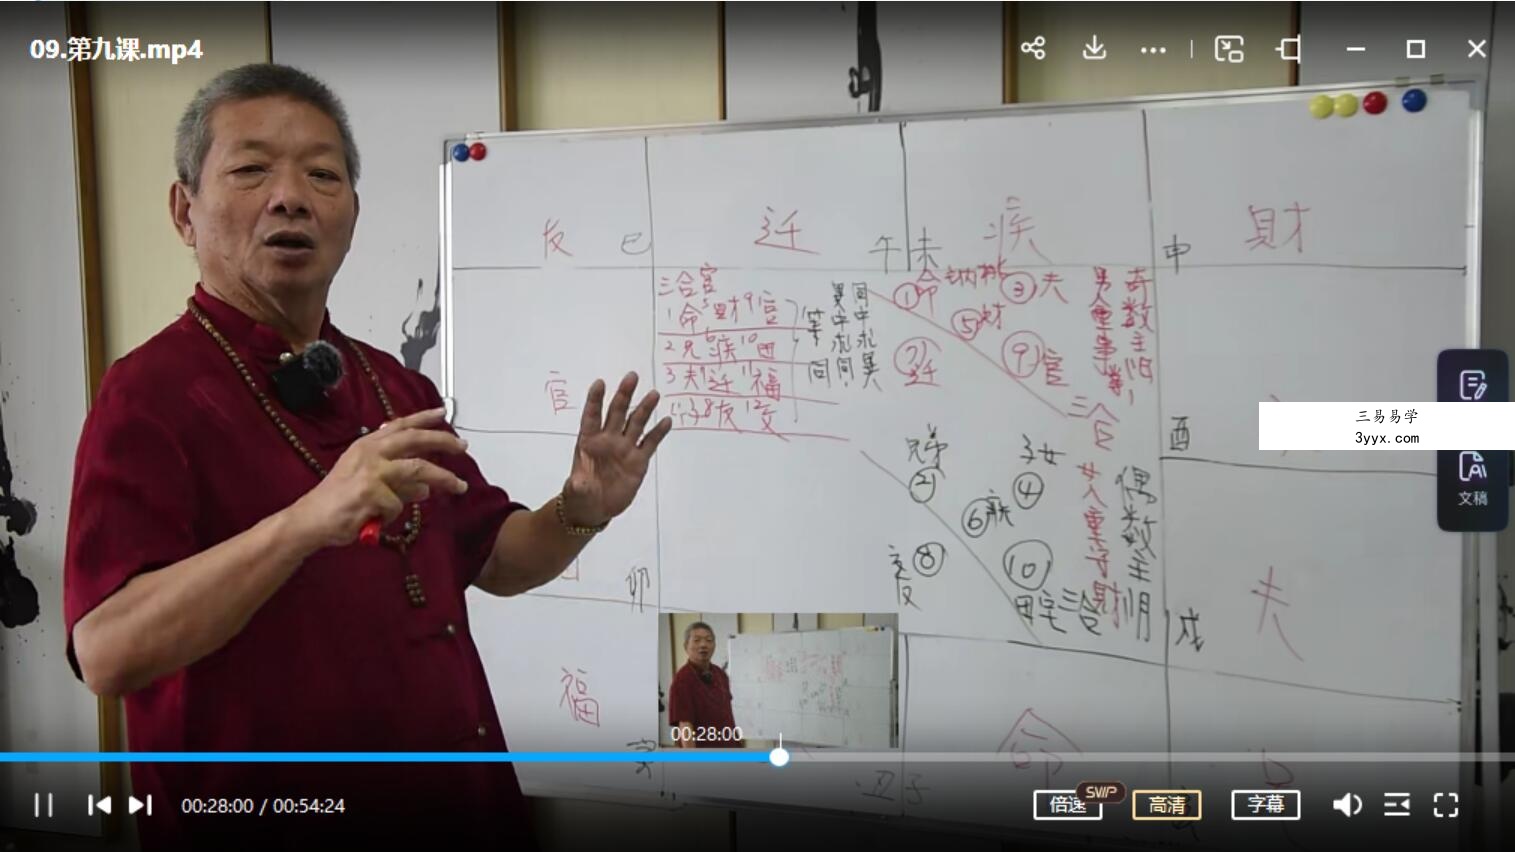 09.第九课.mp4
友 巳
迁
午 未
疾
申
財
三合官
1命 5财 9官
2兄 6疾 10田
3夫 7迁 11福
8友 12父
等
同
異中求同
同中求異
①命
纳
③夫
⑤财
⑦迁
⑨官
三合
男人重事業
奇数主阳
官
兄弟
②
子女
④
⑥疾
⑧
友
⑩
田宅
三合
女人重子財
偶数主阴
酉
卯
戌
夫
福
寅
丑 子
命
三易易学
3yyx.com
文稿
00:28:00
00:28:00 / 00:54:24
倍速
SVIP
高清
字幕